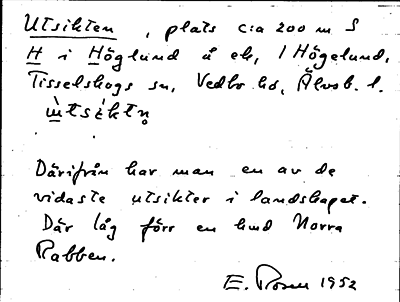 Utsikten, plats c:a 200 m S
H i Höglund å ek, 1 Högelund,
Tisselskogs sn, Vedbo hd, Älvsb. l.
ùtsìktn̥
Därifrån har man en av de
vidaste utsikter i landskapet.
Där låg förr en hmd Norra
Rabben.
E. Rosen 1952